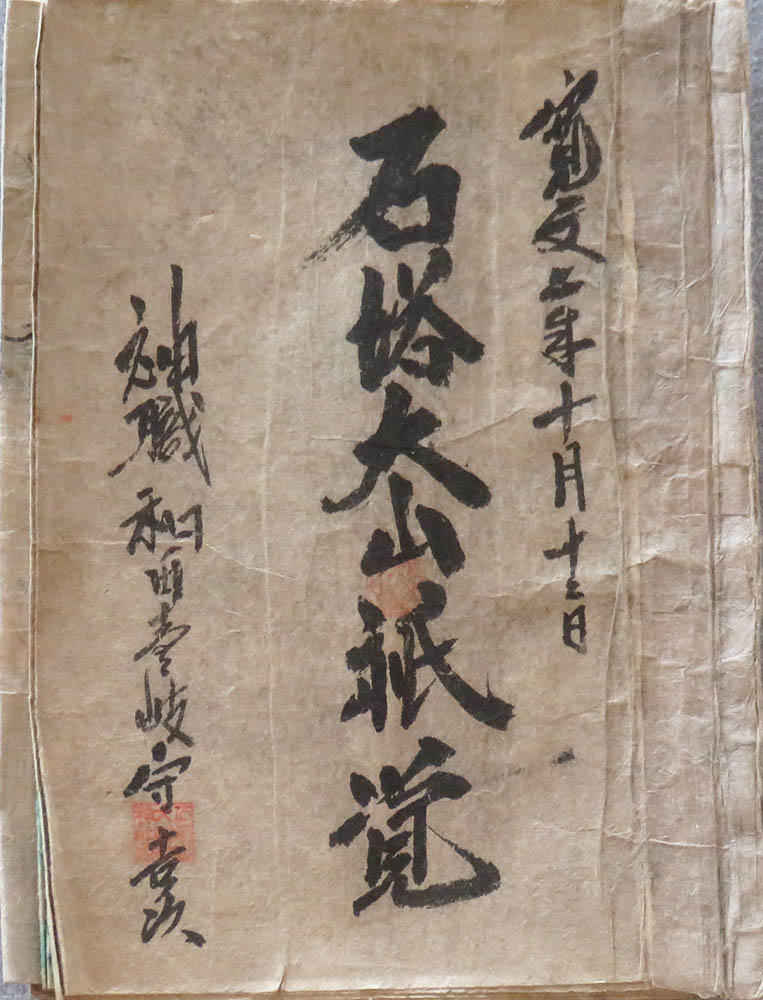 寛文七年十月十二日
石塔大山祇覚
神職和田壱岐守吉次